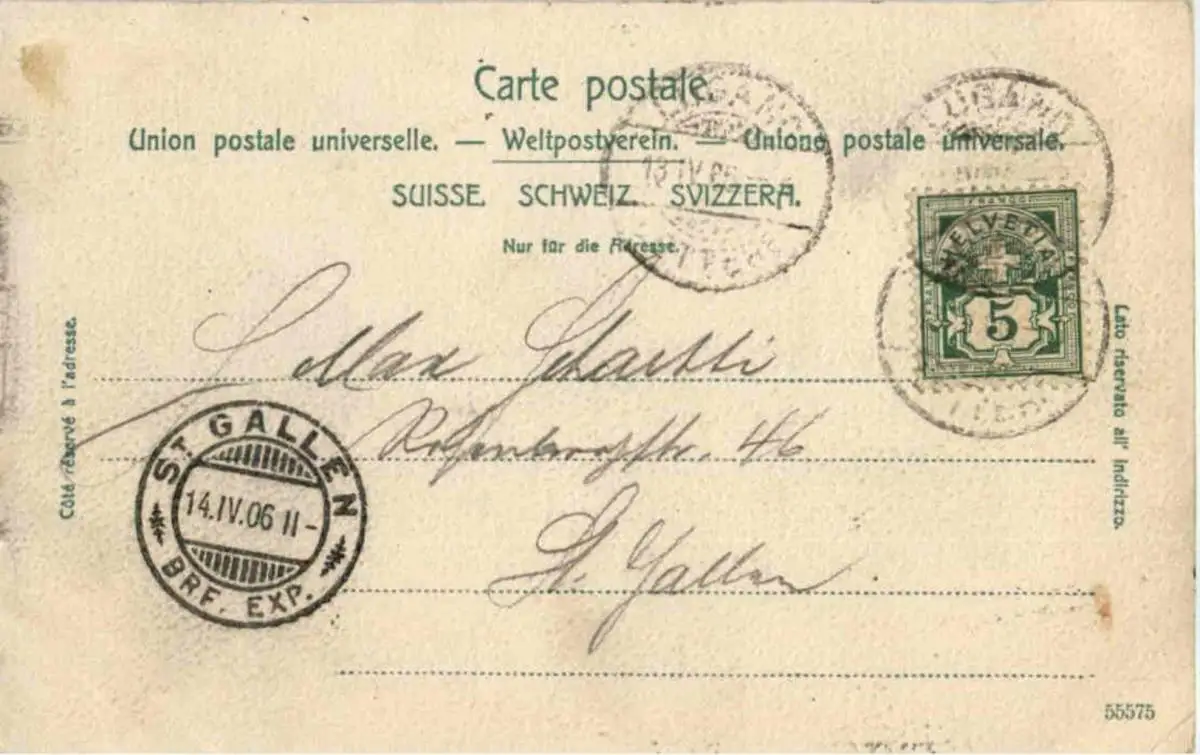 Carte postale.
Union postale universelle. — Weltpostverein. — Unione postale universale.
SUISSE. SCHWEIZ. SVIZZERA.
Nur für die Adresse.
Côté réservé à l'adresse.
Lato riservato all' indirizzo.
LUGANO
13.IV.06
LETTERE
LUGANO
FRANCO
HELVETIA
5
Max
46
St. Gallen
ST. GALLEN
14.IV.06 11-
BRF. EXP.
55575